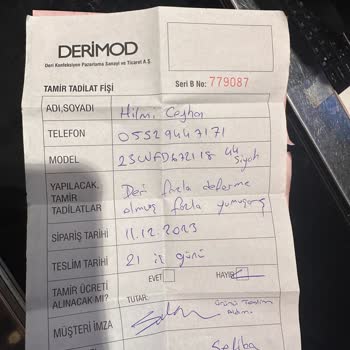 DERİMOD
Deri Konfeksiyon Pazarlama Sanayi ve Ticaret A.Ş.
TAMİR TADİLAT FİŞİ
Seri B No: 779087
ADI,SOYADI Hilmi Ceyhan
TELEFON 05529447171
MODEL 23WFD472118 44 Siyah
YAPILACAK TAMİR TADİLATLAR
Deri fazla deforme
olmuş fazla yumuşamış
SİPARİŞ TARİHİ 11.12.2023
TESLİM TARİHİ 21 iş günü
TAMİR ÜCRETİ ALINACAK MI?
EVET HAYIR
TUTAR:
MÜŞTERİ İMZA
ürünü teslim
aldım.
Saliha